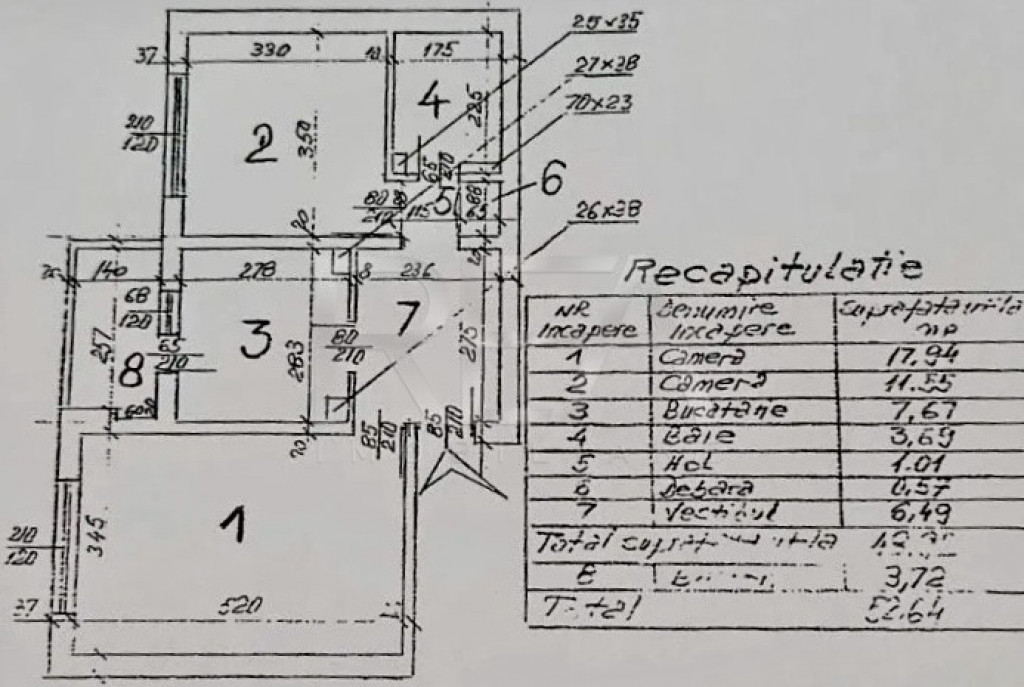 25×35
37
330
10
175
27×38
4
225
70×23
210
120
2
350
65
210
6
80
210
115
5
88
26×38
20
140
278
8
236
Recapitulatie
68
120
257
3
283
80
210
7
275
8
65
210
60
20
85
210
85
210
1
345
210
120
37
520
NR Incapere Denumire Incapere Suprafata utila
1 Camera 17.94
2 Camera 11.55
3 Bucatarie 7,67
4 Baie 3,69
5 Hol 1.01
6 Debara 0,57
7 Vestibul 6,49
Total utila
8 3,72
Total 52.64